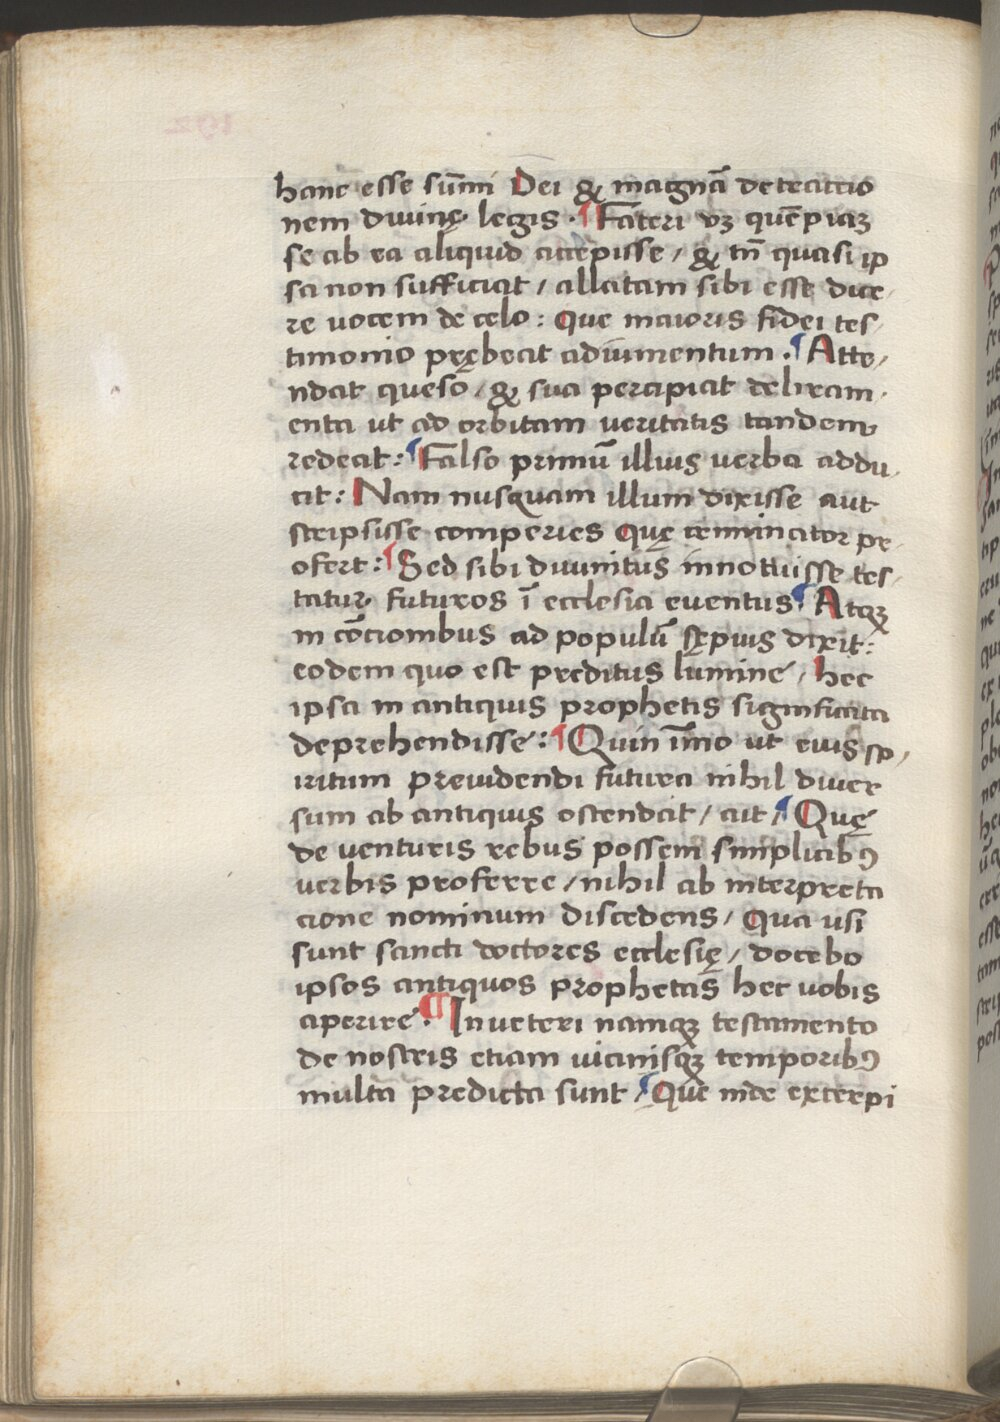 hanc esse sum̄i Dei & magnā detractio
nem diuinę legis. ¶ Fateri vꝫ quēpiaꝫ
se ab ea aliquid accepisse / & tn̄ quasi ip
sa non sufficiat / allatam sibi esse dice-
re uocem de celo: Que maioris fidei tes-
timonio prębeat adiumentum. ¶ Atte-
ndat queso / & sua percipiat deliram-
enta ut ad orbitam ueritatis tandem
redeat: ¶ Falso primū illius uerba addu-
cit: Nam nusquam illum dixisse aut
scripsisse comperies Quę criminator pr-
ofert: ¶ Sed sibi diuinitus innotuisse tes-
tatur futuros ī ecclesia euentus ¶ Atqꝫ
in cōcionibus ad populū sępius dixit:
eodem quo est preditus lumine / hec
ipsa in antiquis prophetis significata
deprehendisse: ¶ Quin īmo ut eius sp-
iritum preuidendi futura nihil diuer
sum ab antiquis ostendat / ait / ¶ Quę
de venturis rebus possem simplicibꝰ
uerbis proferre / nihil ab interpreta
cione nominum discedens / Qua usi
sunt sancti doctores ecclesię / docebo
ipsos antiquos prophetas hec uobis
aperire. ¶ In ueteri namqꝫ testamento
de nostris etiam uicinisqꝫ temporibꝰ
multa predicta sunt / ¶ Que inde excerpi